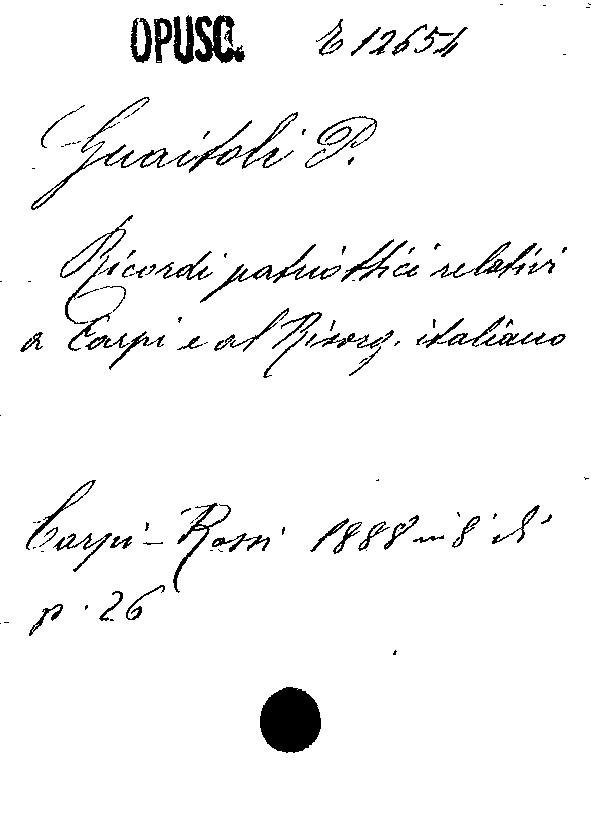 OPUSC. E 12654
Guaitoli P.
Ricordi patriottici relativi
a Carpi e al Risorg. italiano
Carpi - Rossi 1888 in 8° di
p. 26